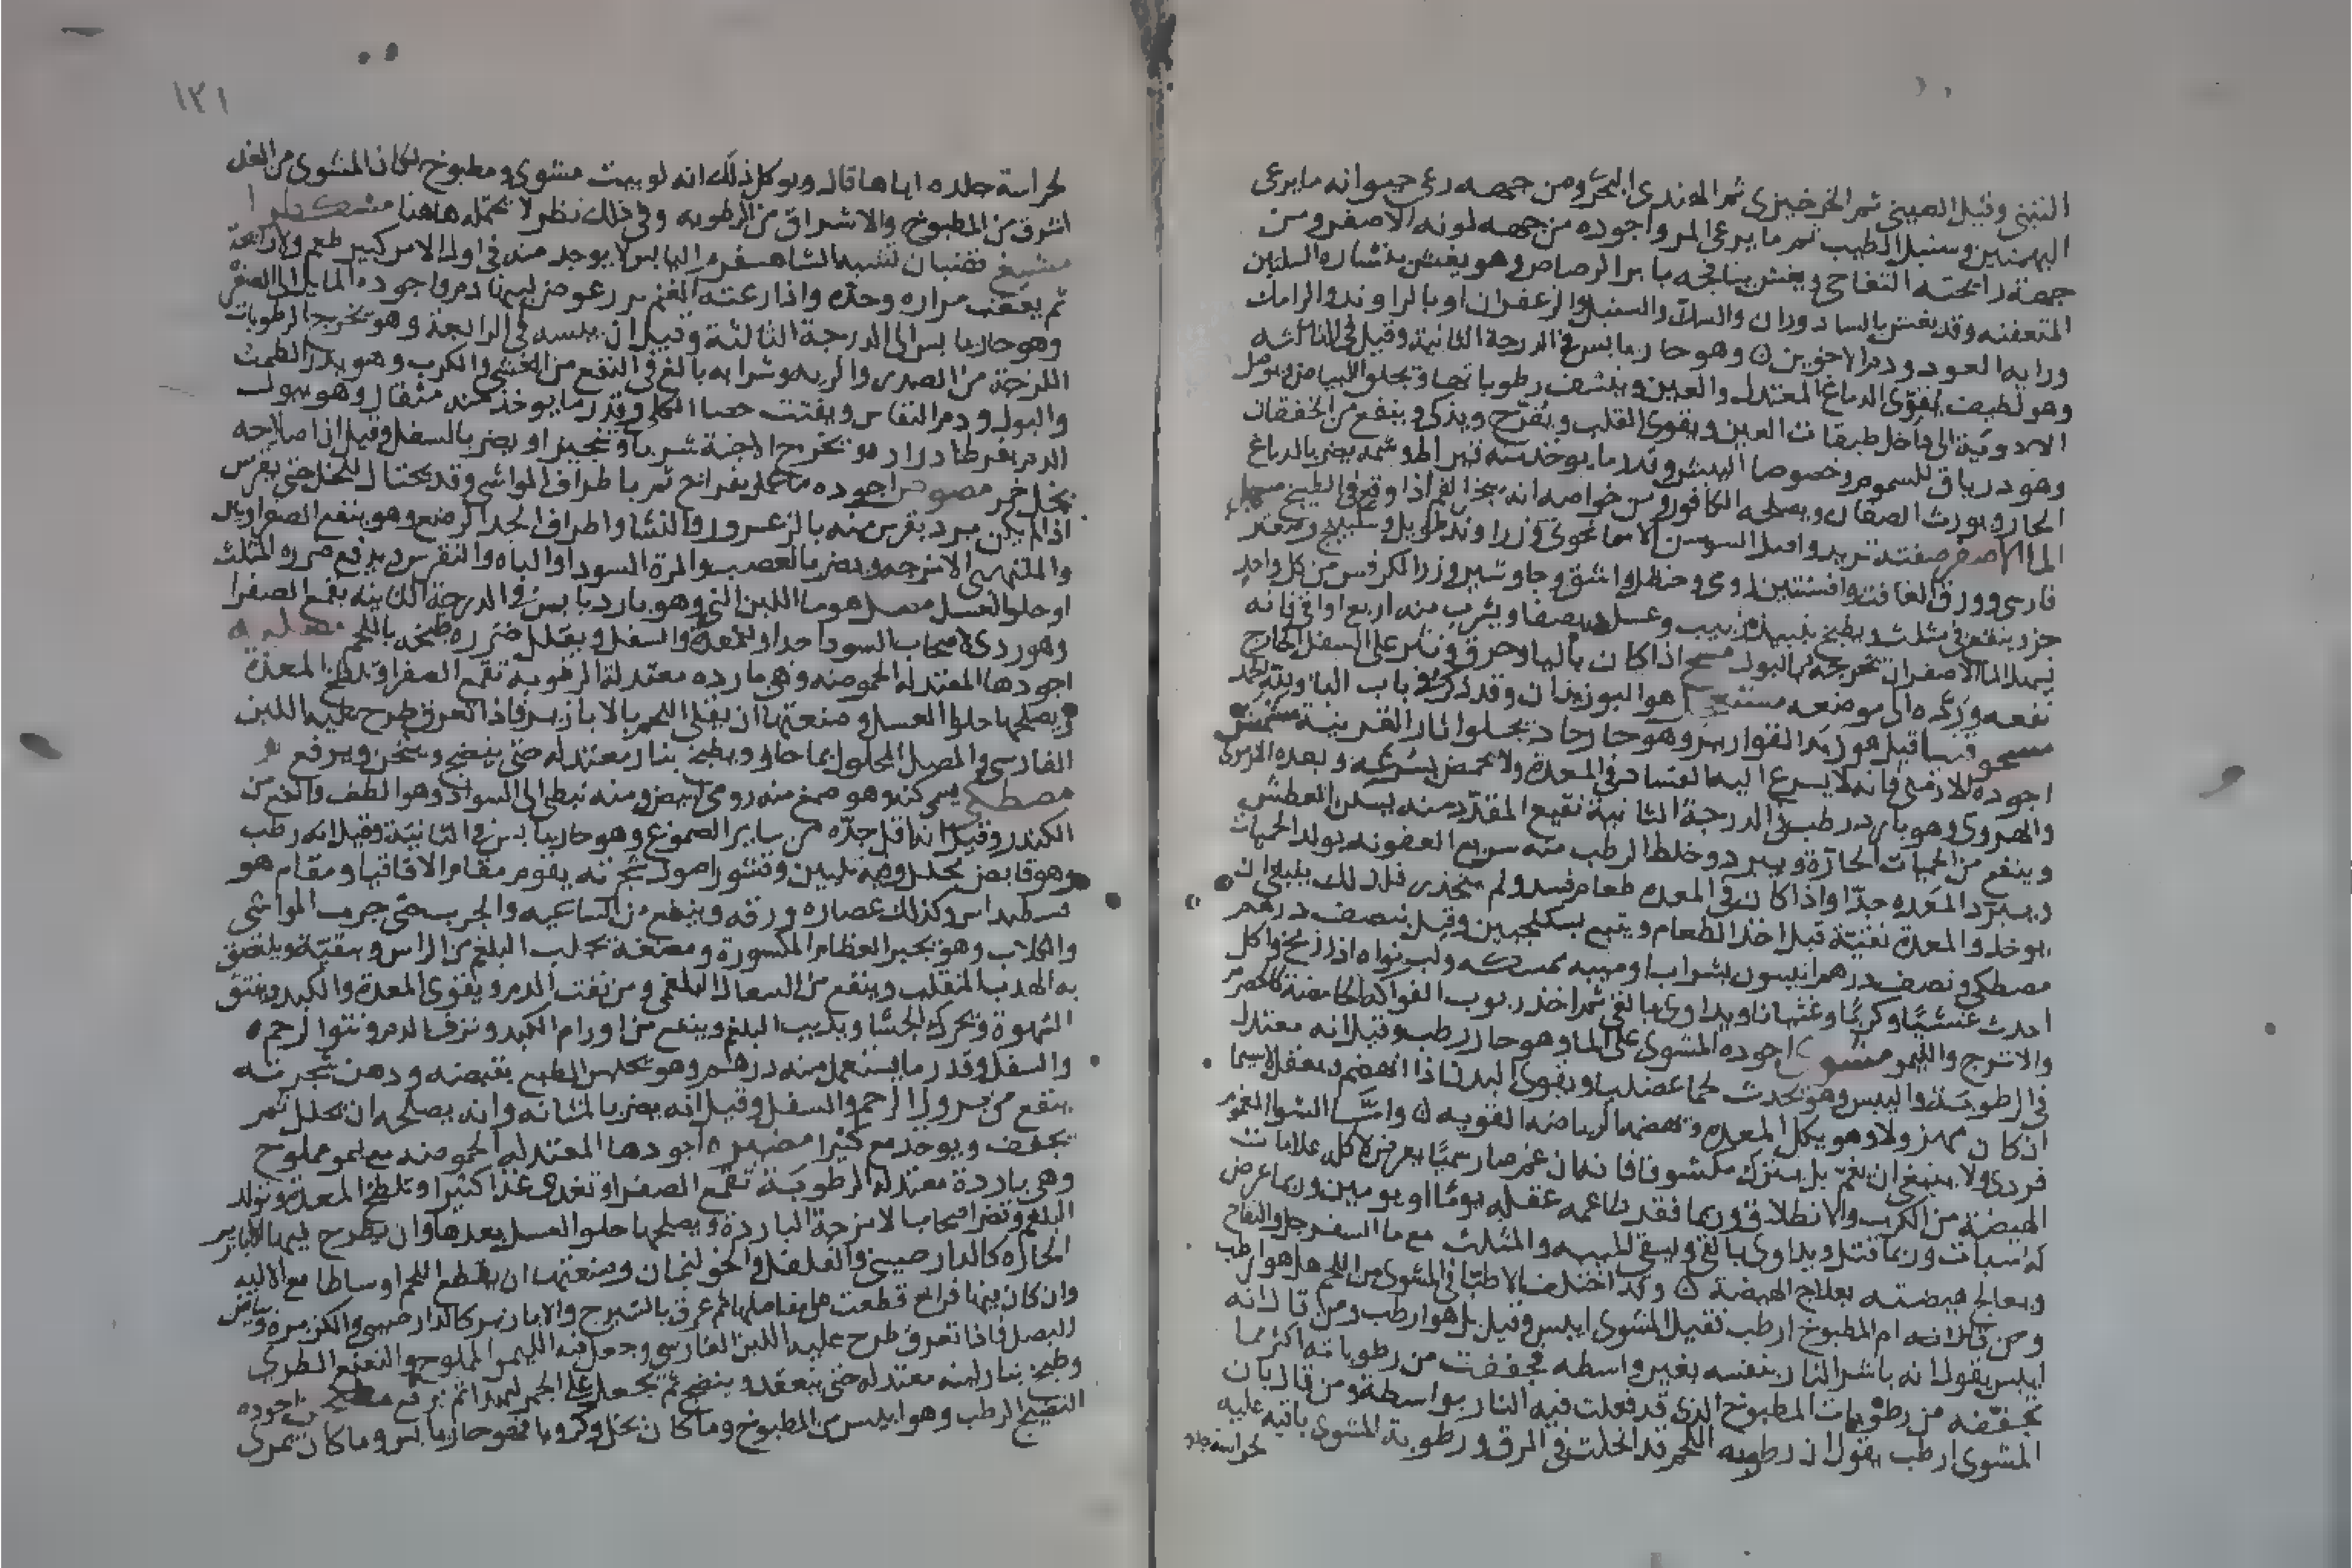 التبتي وقيل الصيني ثم الخرخيزي ثم الهندي البحري ومن جهه رعي حيوانه ما يرعى
البهمنين وسنبل الطيب ثم ما يرعى المر واجوده من جهه لونه الاصفر ومن
جهة رايحته التفاحي ويغش بنافجه بابر الرصاص وهو يغش بنشاره السلتين
المتعفنه وقد يغش بالسادوران والسك والسنبل والزعفران او بالراوند والرامك
ورايه العود ودم الاخوين وهو حار يابس في الدرجة الثانية وقيل في الثالثه
وهو لطيف يقوى الدماغ المعتدل والعين وينشف رطوباتها ويجلوا البياض ويوصل
الادوية الى داخل طبقات العين ويقوى القلب ويفرح ويذكي وينفع من الخفقان
وهو درياق للسموم وخصوصا البيش وقدر ما يوخذ منه قيراط وشمه يضر بالدماغ
الحار ويورث الصفار ويصلحه الكافور ومن خواصه انه يبخر الفم اذا وقع في الطبيخ مسهل
الما الاصفر صفته تربد واصل السوسن الاسمانجوني وزراوند طويل وسكبينج
فارسي وورق الغافت وافسنتين رومي وحنظل واشق وجاوشير وزر الكرفس من كل واحد
جزو ينقع في مثلث ويطبخ بنبيذ زبيب وعسل ويصفا ويشرب منه اربع اواقى فانه
يسهل الما الاصفر ان تخرجه بالبول مسح اذا كان باليا وحرق ونثر على السفل الخارج
نفعه ورده الى موضعه مستعجل هو البوزيدان وقد ذكر في باب البا
مسحقونيا قيل هو زبد القوارير وهو حار حاد يجلوا اثار القرنية مشمش
اجوده الارمني فانه لا يسرع اليه الفساد في المعدة ولا يحمض بسرعه وبعده
والهروي وهو بارد رطب في الدرجة الثانية نقيع المقدد منه يسكن العطش
وينفع من الحميات الحارة ويبرد وخلط الرطب منه سريع العفونه يولد الحميات
ويبرد المعده جدا واذا كان في المعده طعام فسد ولم ينحدر فلذلك ينبغي ان
يوخذ والمعدة نقية قبل اخذ الطعام ويتبع بسكنجبين وقيل بنصف درهم
مصطكي ونصف درهم انيسون بشراب او ميبه ممسكه ولب نواه اذا زنخ واكل
احدث غشيا وكربا وغثيانا ويداوى بالقي ثم اخذ ربوب الفواكه الحامضة كالحصرم
والاترج والليمو مشوي اجوده المشوى على الما وهو حار رطب وقيل انه معتدل
في الرطوبة واليبس وهو يحدث لحما عضليا ويقوى البدن اذا انهضم وبعقل لا سيما
ان كان مهزولا وهو يكل المعده وتهضمه الرياضه القويه واما الشوا المغموم
فردى ولا ينبغى ان يغم بل يترك مكشوفا فانه ان غم صار سميا يعرض لاكله علامات
الهيضة من الكرب والانطلاق وربما فقد طاعمه عقله يوما او يومين وربما عرض
له سبات وربما قتل ويداوى بالقي ويسقى الميبه والمثلث مع ما السفرجل والتفاح
ويعالج هيضته بعلاج الهيضة وقد اختلف الاطبا في المشوى من اللحم هل هو ارطب
ومن قال انه ام المطبوخ ارطب فقيل المشوى ايبس وقيل بل هو ارطب ومن قال انه
ايبس يقول انه باشر النار بنفسه بغير واسطه فجففت من رطوباته اكثر مما
تجففه من رطوبات المطبوخ الذى قد فعلت فيه النار بواسطة ومن قال بان
المشوى ارطب يقول ان رطوبه اللحم قد انحلت في المرق ورطوبة المشوى باقيه عليه
لحراسة جلده
لحراسة جلده اياها قال ويوكل ذلك انه لو بيت مشوى ومطبوخ لكان المشوى من الغد
اشرق من المطبوخ والاشراق من الرطوبه وفي ذلك نظر لا يحتمله هاهنا مشكطرا
مشيع قضبان تشبه الشاهسفرم اليابس لا يوجد منه في اول الامر كبير طعم ولا رايحة
ثم يعقب مراره وحده واذا رعته الغنم در عوض لبنها دم واجوده المايل الى الصفره
وهو حار يابس الى الدرجة الثالثة وقيل ان يبسه في الرابعة وهو يخرج الرطوبات
اللزجة من الصدر والريه وشرابه بالغ في النفع من الغشي والكرب وهو يدر الطمث
والبول ودم النفاس ويفتت حصا الكلى وقدر ما يوخذ منه مثقال وهو يبول
الدم بفرط ادراره وتخرج الاجنة شربا وتبخيرا ويضر بالسفل وقيل ان اصلاحه
بخل خمر مصوص اجوده ما عمل بفرايخ ثم باطراف المواشي وقد يختار للخل حتى يقرس
اذا لم يكن برد يقرس منه بالزعرور والنشا واطراف الجدا الرضع وهو ينفع الصفراويين
والملتهبى الامزجه ويضر بالعصب والمرة السودا والباه والنقرس ويدفع ضرره المثلث
او حلوا العسل مصل هو ما اللبن الني وهو بارد يابس في الدرجة الثانيه يقمع الصفرا
وهو ردى لاصحاب السودا جدا وللمعدة والسفل ويقلل ضرره طبخه باللحم مصليه
اجودها المعتدله الحموضه وهي بارده معتدلة الرطوبة تقمع الصفرا وتلطخ المعدة
ويصلحها حلوا العسل وصنعتها ان يغلى اللحم بالابازير فاذا تعرق طرح عليه اللبن
الفارسي والمصل المحلول بما حار ويطبخ بنار معتدله حتى ينضج ويسخن ويرفع
مصطكي يسمى كنه وهو صمغ منه رومي ابيض ومنه نبطى الى السواد وهو الطف وانفع من
الكندر وقيل انه اقل حده من ساير الصموغ وهو حار يابس في الثانية وقيل انه رطب
وهو قابض محلل وفيه تليين وقشور اصول شجرته يقوم مقام الاقاقيا ومقام هو
فسطيداس وكذلك عصاره ورقه وينفع من الساعيه والجرب حتى جرب المواشى
والكلاب وهو يجبر العظام المكسورة ومضغه يجلب البلغم من الراس وينقية ويلصق
به الهدب المنقلب وينفع من السعال البلغمى ومن نفث الدم ويقوى المعدة والكبد ويفتق
الشهوة ويحرك الجشا ويذيب البلغم وينفع من اورام الكبد ونزف الدم ونتوا الرحم
والسفل وقدر ما يستعمل منه درهم وهو يحبس الطبع بقبضه ودهن شجرته
ينفع من بروز الرحم والسفل وقيل انه يضر بالمثانه وانه يصلحه ان يحلل ثم
يجفف ويوخذ مع كثيرا مضيره اجودها المعتدله الحموضه مع ليمو مملوح
وهي باردة معتدله الرطوبة تقمع الصفرا وتغذى غذا كثيرا وتلطخ المعدة وتولد
البلغم وتضر اصحاب الامزجة الباردة ويصلحها حلوا العسل بعدها وان يطرح فيها الابازير
الحاره كالدارصيني والفلفل والخولنجان وصنعتها ان يقطع اللحم اوساطا مع الاليه
وان كان فيها فراخ قطعت على مفاصلها ثم عرق بالشيرج والابازير كالدارصيني والكزبره وبياض
البصل فاذا تعرق طرح عليه اللبن الفارسي وجعل فيه الليمو المملوح والنعنع الطرى
وطبخ بنار لينه معتدله حتى ينعقد وينضج ثم يجعل على الجمر ليهدا ثم يرفع مطجن اجوده
النضيج الرطب وهو ايبس من المطبوخ وما كان بخل وكرويا فهو حار يابس وما كان بمرى
١٢١